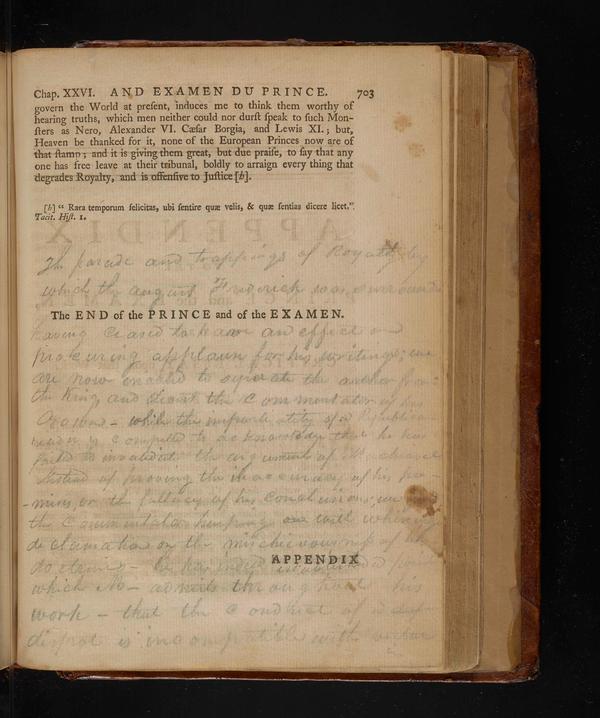 Chap. XXVI. AND EXAMEN DU PRINCE. 703
govern the World at preſent, induces me to think them worthy of
hearing truths, which men neither could nor durſt ſpeak to ſuch Mon-
ſters as Nero, Alexander VI. Cæſar Borgia, and Lewis XI.; but,
Heaven be thanked for it, none of the European Princes now are of
that ſtamp; and it is giving them great, but due praiſe, to ſay that any
one has free leave at their tribunal, boldly to arraign every thing that
degrades Royalty, and is offenſive to Juſtice [b].
[b] “ Rara temporum felicitas, ubi ſentire quæ velis, & quæ ſentias dicere licet.”
Tacit. Hiſt. 1.
The parade and trappings of Royalty by
which the august Frederick was surrounded
The END of the PRINCE and of the EXAMEN.
having ceased to have an effect and
procuring applause for his writings; we
are now enabled to separate the author from
the King, and the Commentator of his
Crown - while the impartiality of a Republican
reader is compelled to acknowledge that he has
failed to invalidate the arguments of Machiavel
Instead of proving the inaccuracy of his pre-
-mises, or the fallacy of his conclusions, we
the Commentator
declamation on the mischievousness of
doctrines -
APPENDIX
which he admits throughout his
work - that the conduct of a
is incompatible with